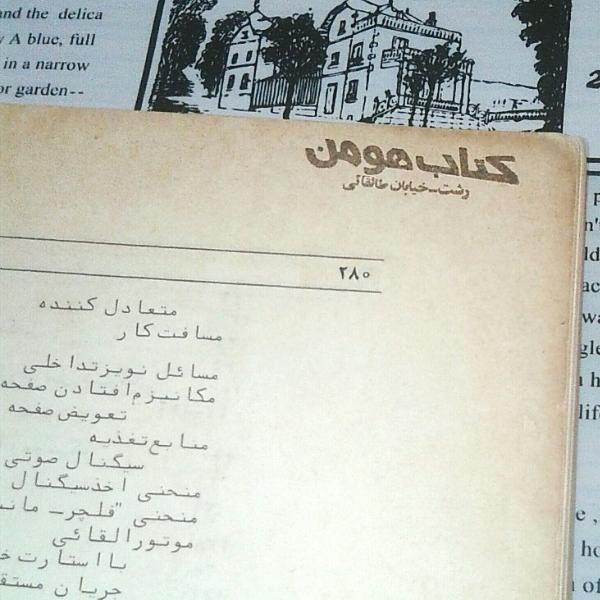 and the delica
A blue, full
in a narrow
or garden--
کتاب هومن
رشت-خیابان طالقانی
۲۸۰
متعادل کننده
مسافت کار
مسائل نویز تداخلی
مکانیزم افتادن صفحه
تعویض صفحه
منابع تغذیه
سیگنال صوتی
منحنی اخذ سیگنال
منحنی "فلچر-
موتور القائی
با استارت
جریان